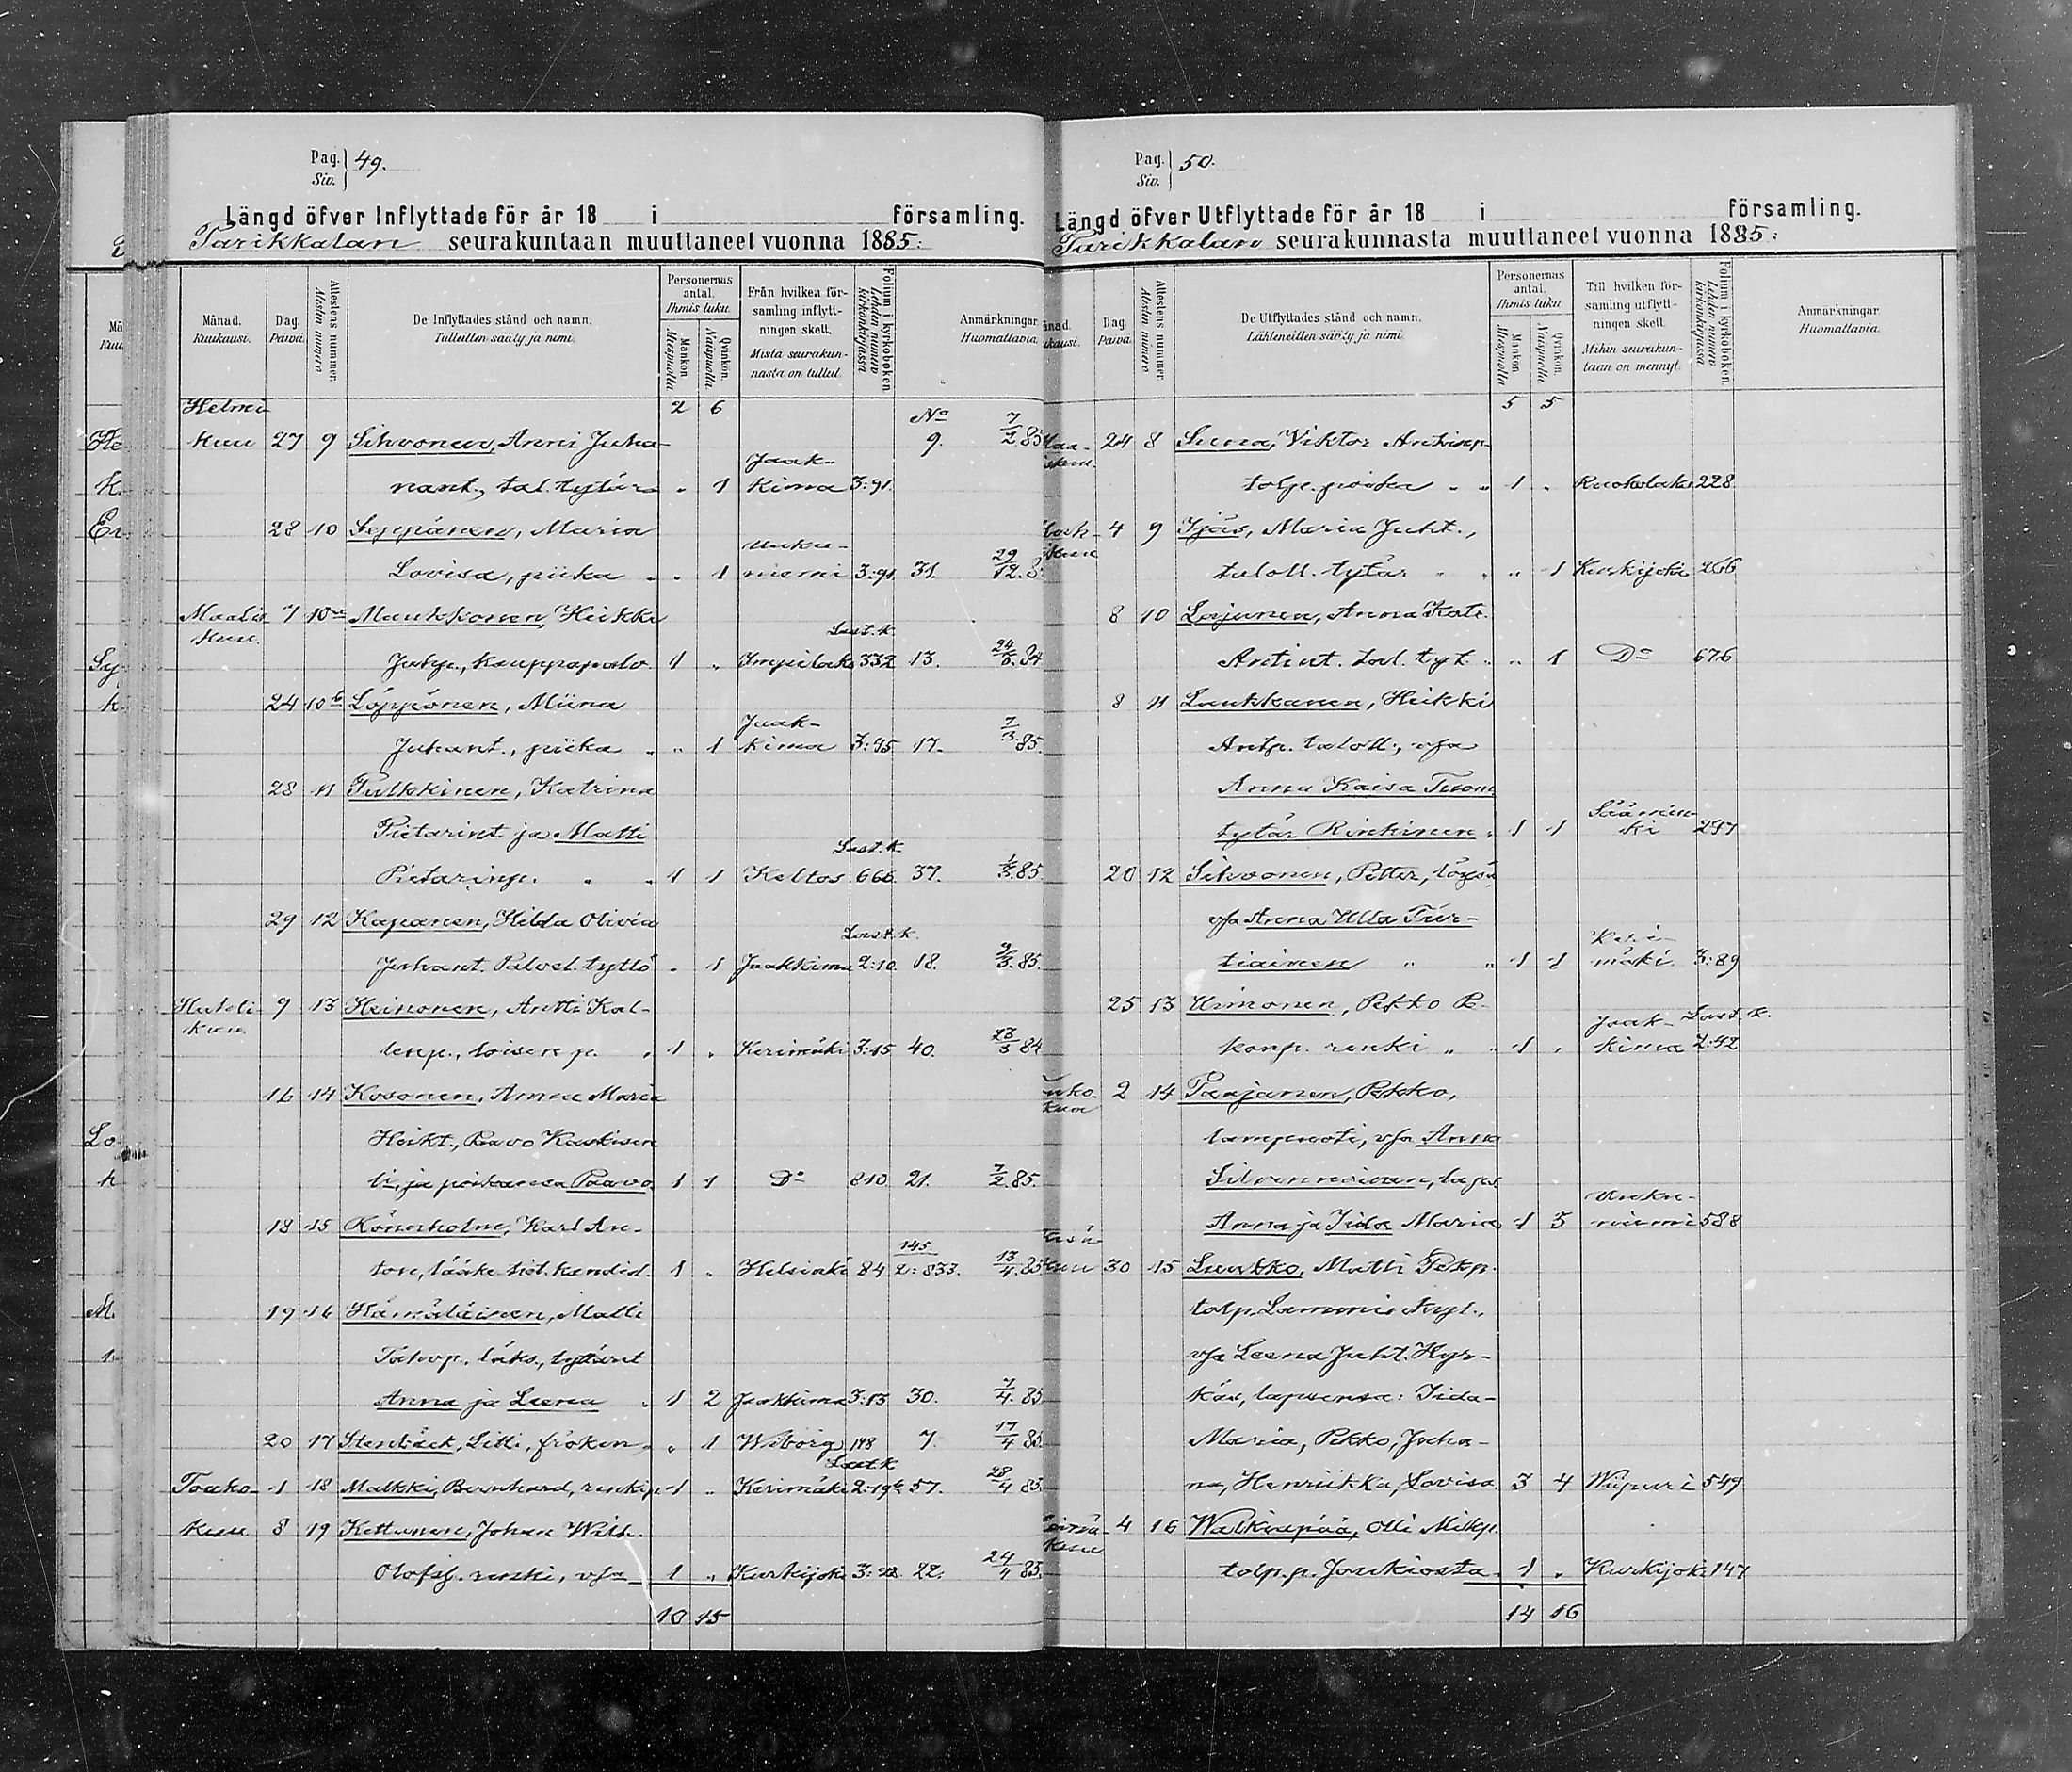 Pag. Siv. 49.
Längd öfver Inflyttade för år 18 i församling.
Parikkalan seurakuntaan muuttaneet vuonna 1885:
Månad. Kuukausi.
Dag. Päivä.
Attestens nummer. Atestin numero
De Inflyttades stånd och namn. Tulleitten sääty ja nimi.
Personernas antal. Ihmis luku.
Mankön. Miespuolia
Qvinkön. Naispuolia
Från hvilken församling inflyttningen skett. Mistä seurakunnasta on tullut.
Folium i kyrkoboken. Lehden numero kirkonkirjassa
Anmärkningar Huomattavia
Helmi 2 6 No 7/2 85
kuu 27 9 Sihvonen, Anni Juha- 9.
nant., tal. tytär „ 1 Jaakkima 3:91.
28 10 Seppänen, Maria
Lovisa, piika „ 1 Uukuniemi 3:91. 31. 29/12 8
Maalis kuu. 7 10 Maukkonen, Heikki
Juhp., kauppapalv. 1 „ Impilaks 332 13. 84
24 10 b Löppönen, Miina
Juhant., piika „ 1 Jaakkima 3:45 17. 7/3 85.
28 11 Pulkkinen, Katrina
Pietarint. ja Matti
Pietarinp. 1 1 Keltos 666. 37. 85.
29 12 Kapanen, Hilda Olivia
Juhant. Palvel. tyttö „ 1 Jaakkima 2:10. 18. 9/3 85.
Huhti- kuu 9 13 Heinonen, Antti Kal-
lenp., loisen p. 1 „ Kerimäki 3:15 40. 84
16 14 Kosonen, Anna Maria
Heikt., Paavo Kaskisen
li, ja poikansa Paavo 1 1 Do 810. 21. 7/2 85.
18 15 Könnholm, Karl An-
ton, lääke tiet. kandid. 1 „ Helsinki 84 145 2:833. 13/4 85
19 16 Hämäläinen, Matti
Tahvp. läks., tytäret
Anna ja Leena 1 2 Jaakkima 3:13 30. 7/4 85
20 17 Stenbäck, Litti, fröken „ 1 Wiborg 148 7. 17/4 85
Touko- 1 18 Malkki, Bernhard, renkip. 1 „ Kerimäki 57. 28/4 85
kuu 8 19 Kettunen, Johan Wilh.
Olofsp. renki, vsa 1 „ Kurkijoki 22. 24/4 85.
10 15
Pag. Siv. 50.
Längd öfver Utflyttade för år 18 i församling.
Parikkalan seurakunnasta muuttaneet vuonna 1885:
Dag. Päivä
Attestens nummer. Atestin numero
De Utflyttades stånd och namn. Lähteneitten sääty ja nimi.
Personernas antal. Ihmis luku
Mankön Miespuolia
Qvinkön. Naispuolia
Till hvilken församling utflyttningen skett. Mihin seurakuntaan on mennyt.
Folium i kyrkoboken. Lehden numero kirkonkirjassa
Anmärkningar Huomattavia.
5 5
24 8 Suna, Viktor Antinp.
tolp. poika 1 „ Ruokolaks 228
4 9 Sjäs, Maria Juht.,
taloll. tytär „ 1 Kurkijoki 266
8 10 Lajunen, Anna Kati
Antint. tal. tyt. „ 1 Do 676
8 11 Laukkanen, Heikki
Antp. taloll., vsa
Anna Kaisa Tuom.
tytär Rinkinen 1 1 Sääminki 297
20 12 Sihvonen, Petter, loys.
vsa Anna Ulla Tur-
tiainen 1 1 Kerimäki 3:89
25 13 Uimonen, Pekko P-
konp. renki 1 „ Jaakkima Last. k. 2:42
2 14 Paajanen, Pekko,
lampuoti, vsa Anna
Silvennoinen, laps
Anna ja Iida Maria 1 3 Uukuniemi 588
30 15 Luukko, Matti Pekp.
tolp. Lammin kyl.,
vsa Leena Juht. Hyr-
käs, lapsensa: Iida-
Maria, Pekko, Juha-
na, Henriikka, Lovisa 3 4 Wiipuri 549
4 16 Walkiapää, Olli Mikp.
tolp. p. Joukiosta 1 „ Kurkijoki 147
14 16